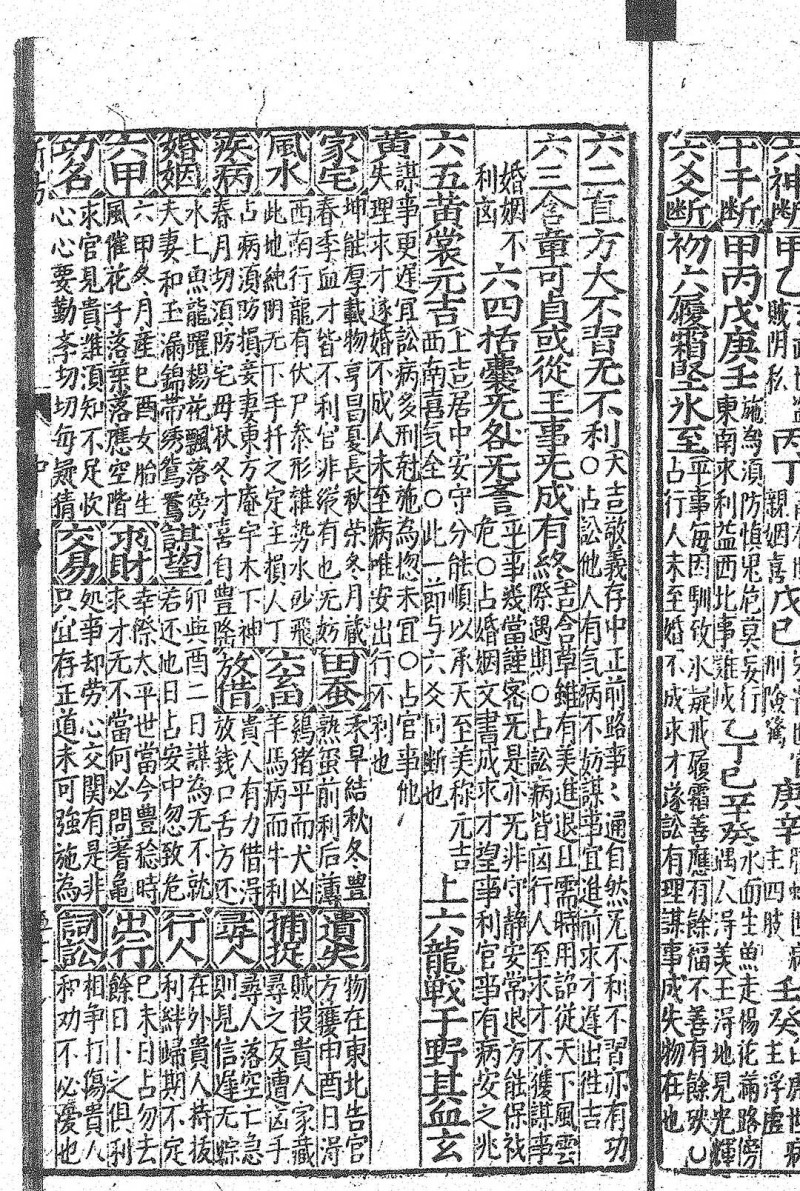 六神斷 甲乙 賊阴私 丙丁 親姻喜 戊己 庚辛 主四肢 壬癸 主浮虛
十干斷 甲丙戊庚壬 施為須防慎鬼危莫妄行
東南求利益西北事難成 乙丁己辛癸 水面生魚走楊花滿路傍
遇人淂美玉淂地見光輝
六爻斷 初六履霜堅氷至 平事每因馴致氷凝戒履霜善應有餘福不善有餘殃○
占行人未至婚不成求才遂訟有理謀事成失物在也
六二直方大不習无不利 大吉敬義存中正前路事〻通自然无不利不習亦有功
○占訟他人有気病不妨謀事宜進前求才遲出往吉
六三含章可貞或從王事无成有終 吉含章雖有美進退且需時用詔從天下風雲
際遇期○占訟病皆凶行人至求才不獲謀事
婚姻不
利凶 六四括囊无咎无誉 平事幾當謹密无是亦无非守静安常退方能保
危○占婚姻文書成求才望事利官事有病安之兆
六五黄裳元吉 上吉居中安守分能順以承天至美称元吉
西南喜気全○此一節与六爻同断也 上六龍戰于野其血玄
黄 謀事更遅宜訟病多刑尅施為惚未宜○占官事他
失理求才遂婚不成人未至病唯安出行不利也
家宅 坤能厚載物亨昌夏長秋荣冬月蔵
春季血才皆不利官非縱有也无妨
田蚕 禾早結秋冬豊
熟蚕前利后薄
遺失 物在東北告官
方獲申酉日淂
風水 西南行龍有伏尸参形雜势水砂飛
此地純阴无下手扦之定主損人丁
六畜 鷄猪平而犬凶
羊馬病而牛利
捕捉 賊投貴人家藏
尋之反遭凶手
疾病 占病須防損妾妻東方庵宇木下神
春月切須防宅母秋冬才喜自豊隆
放借 貴人有力借淂
放錢口舌方还
尋人 尋人落空亡急
則見信遅无踪
婚姻 水上魚龍躍楊花飄落傍
夫妻和玉漏錦帶绣鴛鴦
謀望 卯與酉二日謀為无不就
若还他日占安中忽致危
行人 在外貴人持拔
利絆歸期不定
六甲 六甲冬月産巳酉女胎生
風催花子落葉落應空階
求財 幸際太平世當今豊稔時
求才无不當何必問蓍亀
出行 巳未日占勿去
餘日卜之俱利
功名 求官見貴雖須知不足收
心心要勤李切切毎疑猜
交易 処事却劳心交関有是非
只宜存正道未可強施為
詞訟 相争打傷貴人
和劝不必憂也